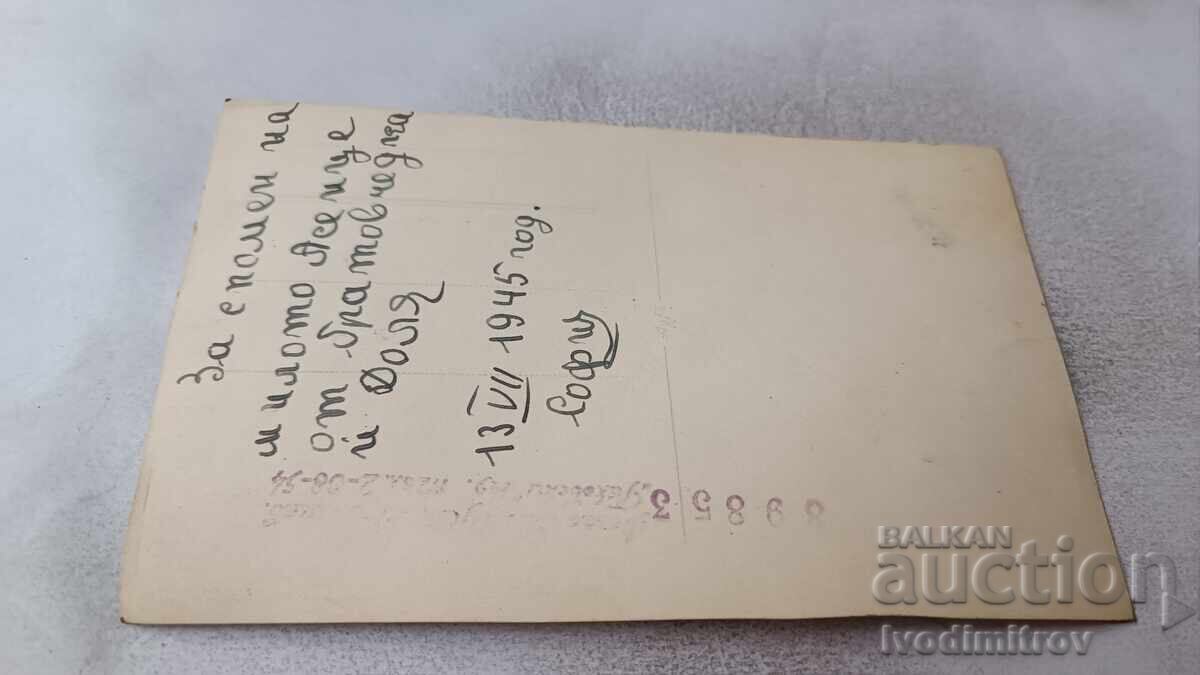 За спомен на
милото Асенце
от братовчедка
ѝ Доля
13 VII 1945 год.
София
Раковски
тел. 2-08-54
89853
BALKAN
auction
Ivodimitrov